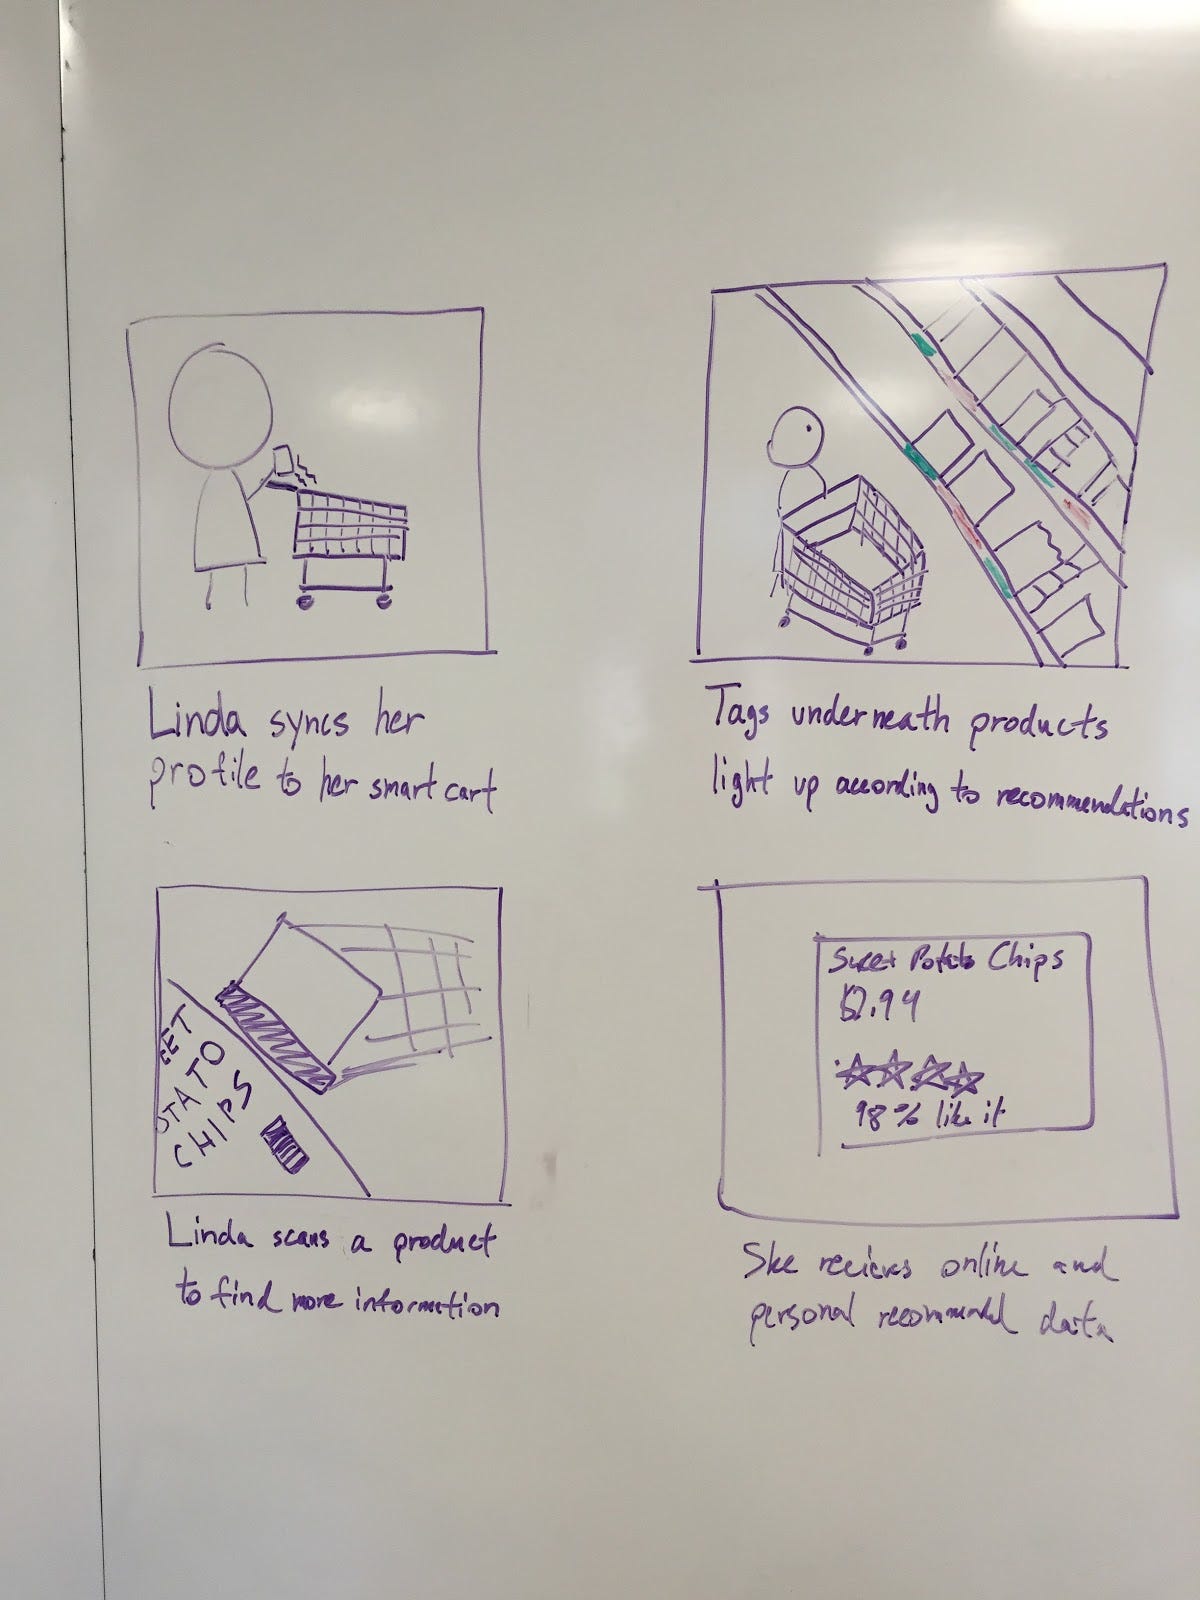 Linda syncs her
profile to her smart cart
Tags underneath products
light up according to recommendations
EET
OTATO
CHIPS
Linda scans a product
to find more information
Sweet Potato Chips
$2.94
98% like it
She recieves online and
personal recommended data